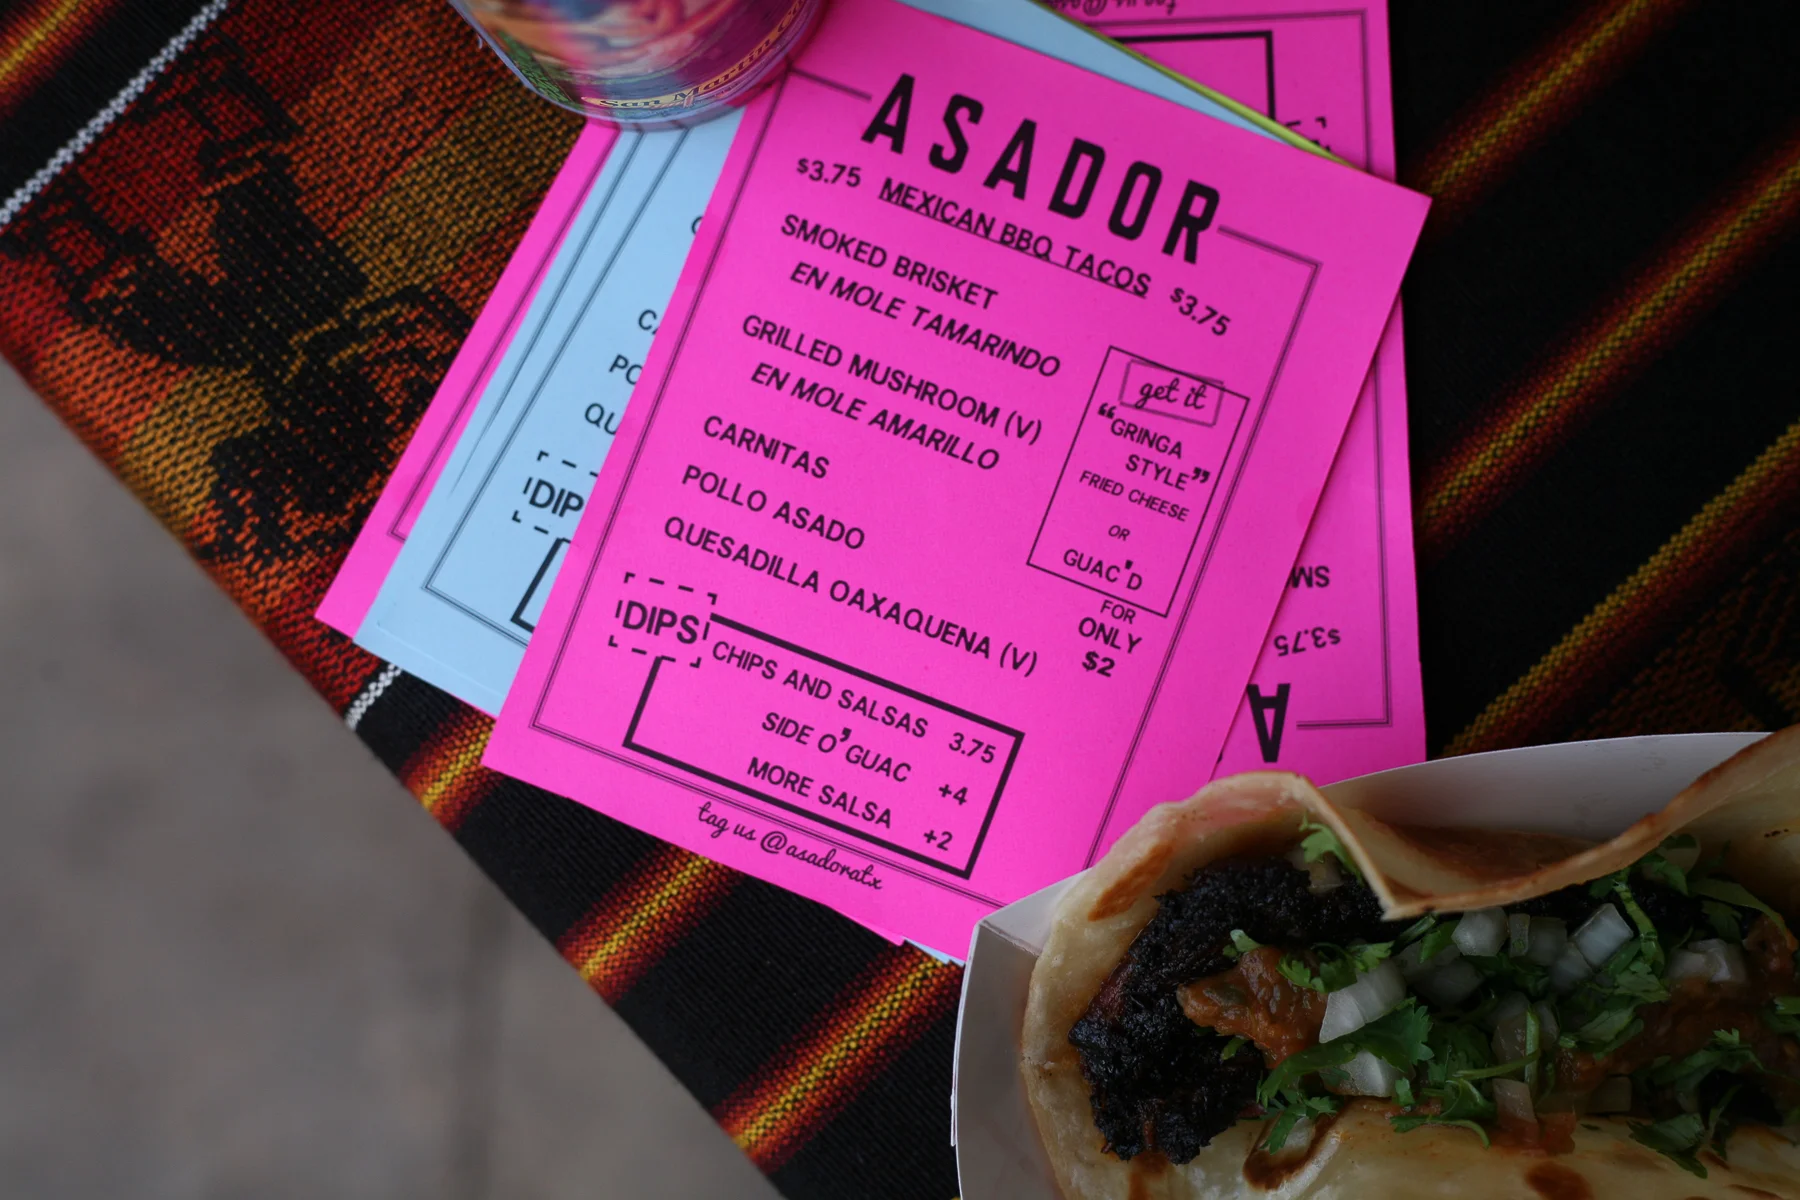 San Martin
ASADOR
$3.75 MEXICAN BBQ TACOS $3.75
SMOKED BRISKET
EN MOLE TAMARINDO
GRILLED MUSHROOM (V)
EN MOLE AMARILLO
CARNITAS
POLLO ASADO
QUESADILLA OAXAQUENA (V)
get it
"GRINGA
STYLE"
FRIED CHEESE
OR
GUAC'D
FOR
ONLY
$2
DIPS
CHIPS AND SALSAS 3.75
SIDE O'GUAC +4
MORE SALSA +2
tag us @asadoratx
CA
PO
QU
DIP
SM
$3.75
A
tag us @